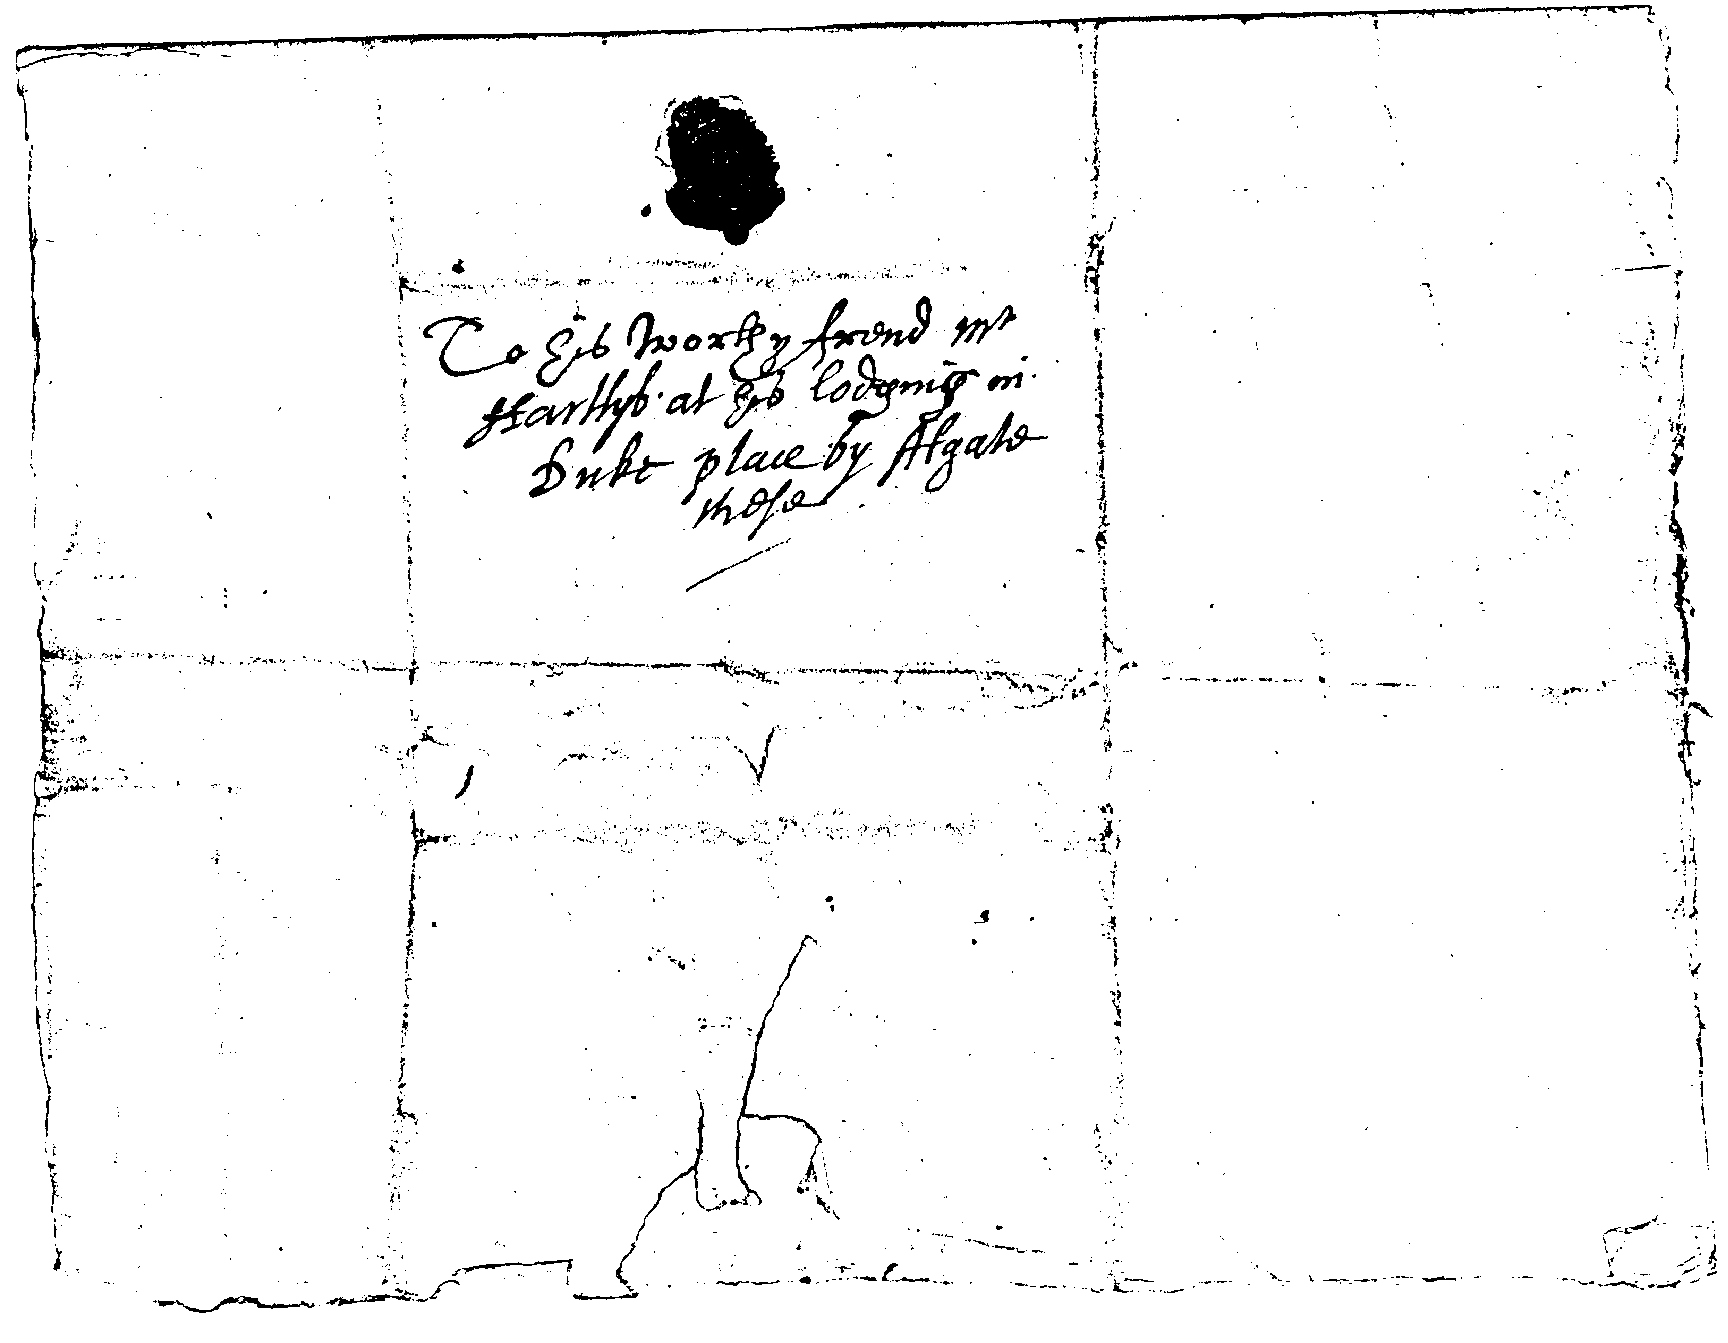 To his worthy frend mr
Hartlyb. at his lodging in.
Duke place by Algate
these